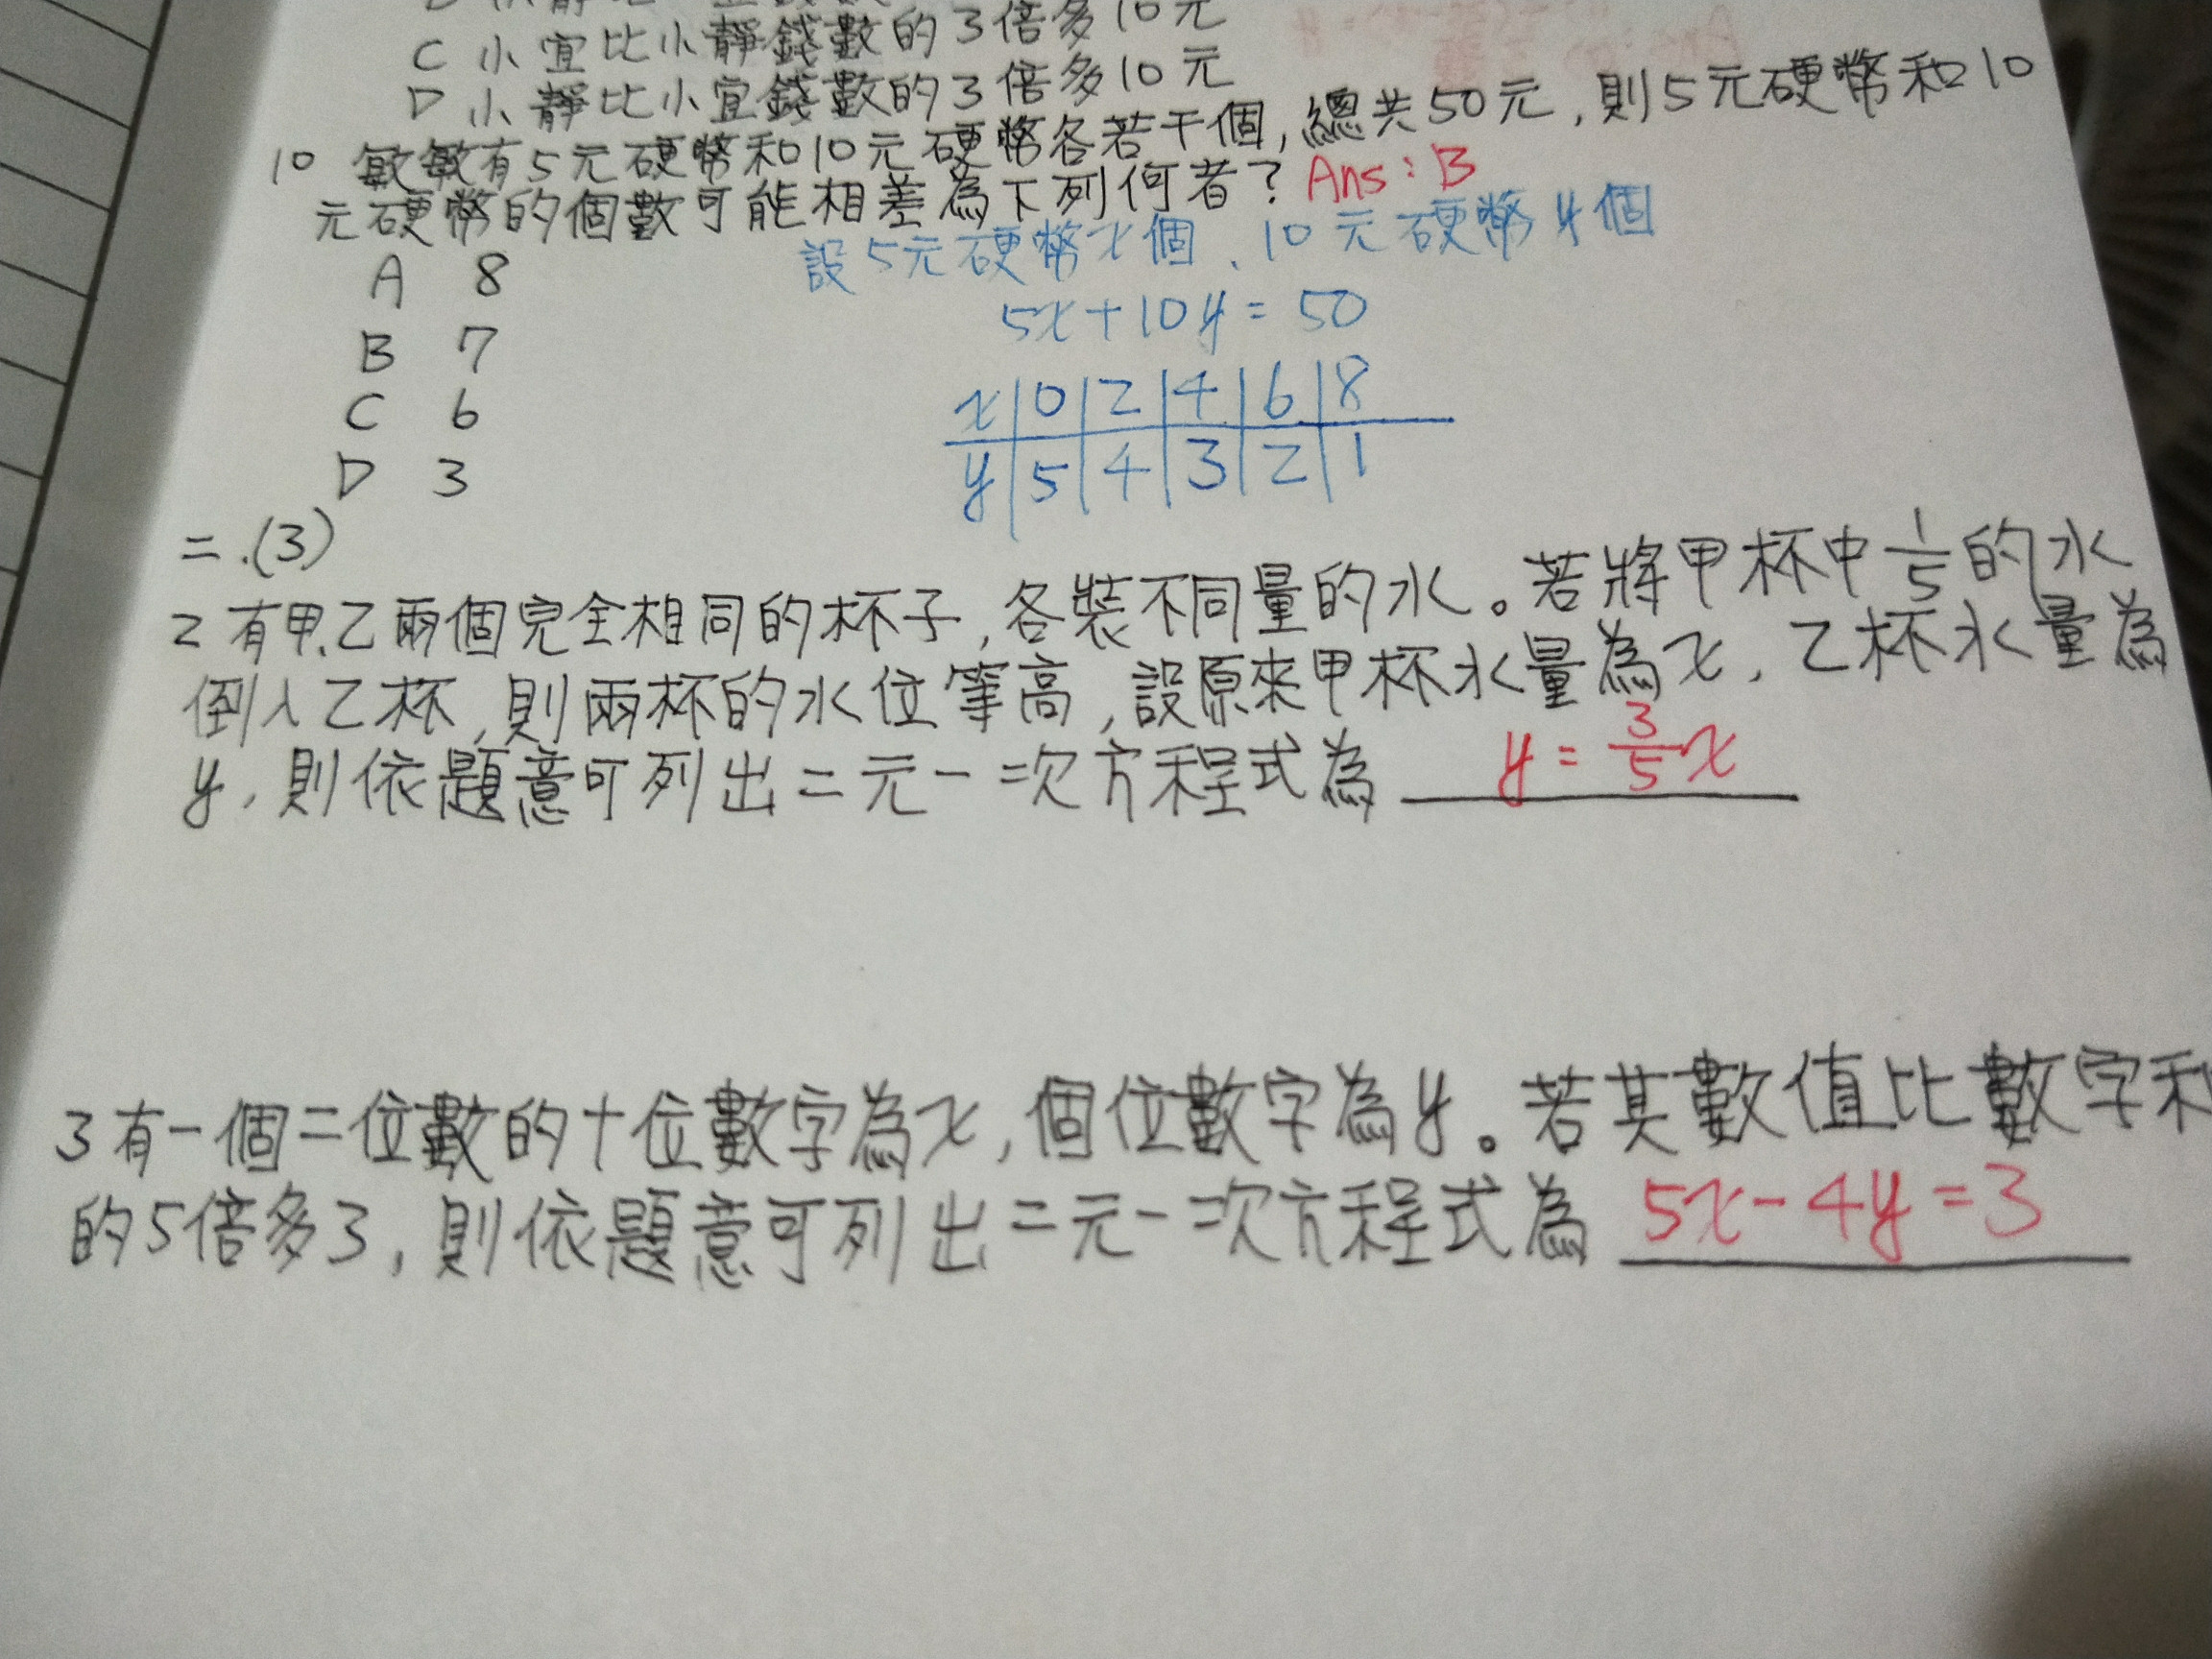 C 小宜比小靜錢數的3倍多10元
D 小靜比小宜錢數的3倍多10元
10 敏敏有5元硬幣和10元硬幣各若干個,總共50元,則5元硬幣和10
元硬幣的個數可能相差為下列何者? Ans:B
設5元硬幣x個、10元硬幣y個
A 8
5x+10y=50
B 7
x 0 2 4 6 8
C 6
y 5 4 3 2 1
D 3
二.(3)
2 有甲.乙兩個完全相同的杯子,各裝不同量的水。若將甲杯中1/5的水
倒入乙杯,則兩杯的水位等高,設原來甲杯水量為x,乙杯水量為
y,則依題意可列出二元一次方程式為 y=3/5x
3 有一個二位數的十位數字為x,個位數字為y。若其數值比數字和
的5倍多3,則依題意可列出二元一次方程式為 5x-4y=3